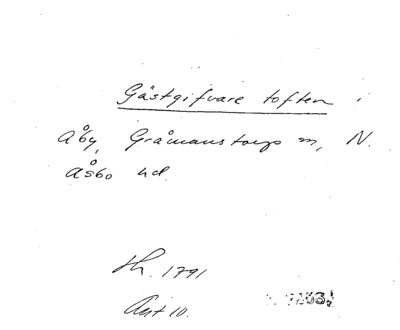 Gästgifvare toften i
Åby, Gråmanstorps m, N.
Åsbo hd.
Sh. 1791
Akt 10.